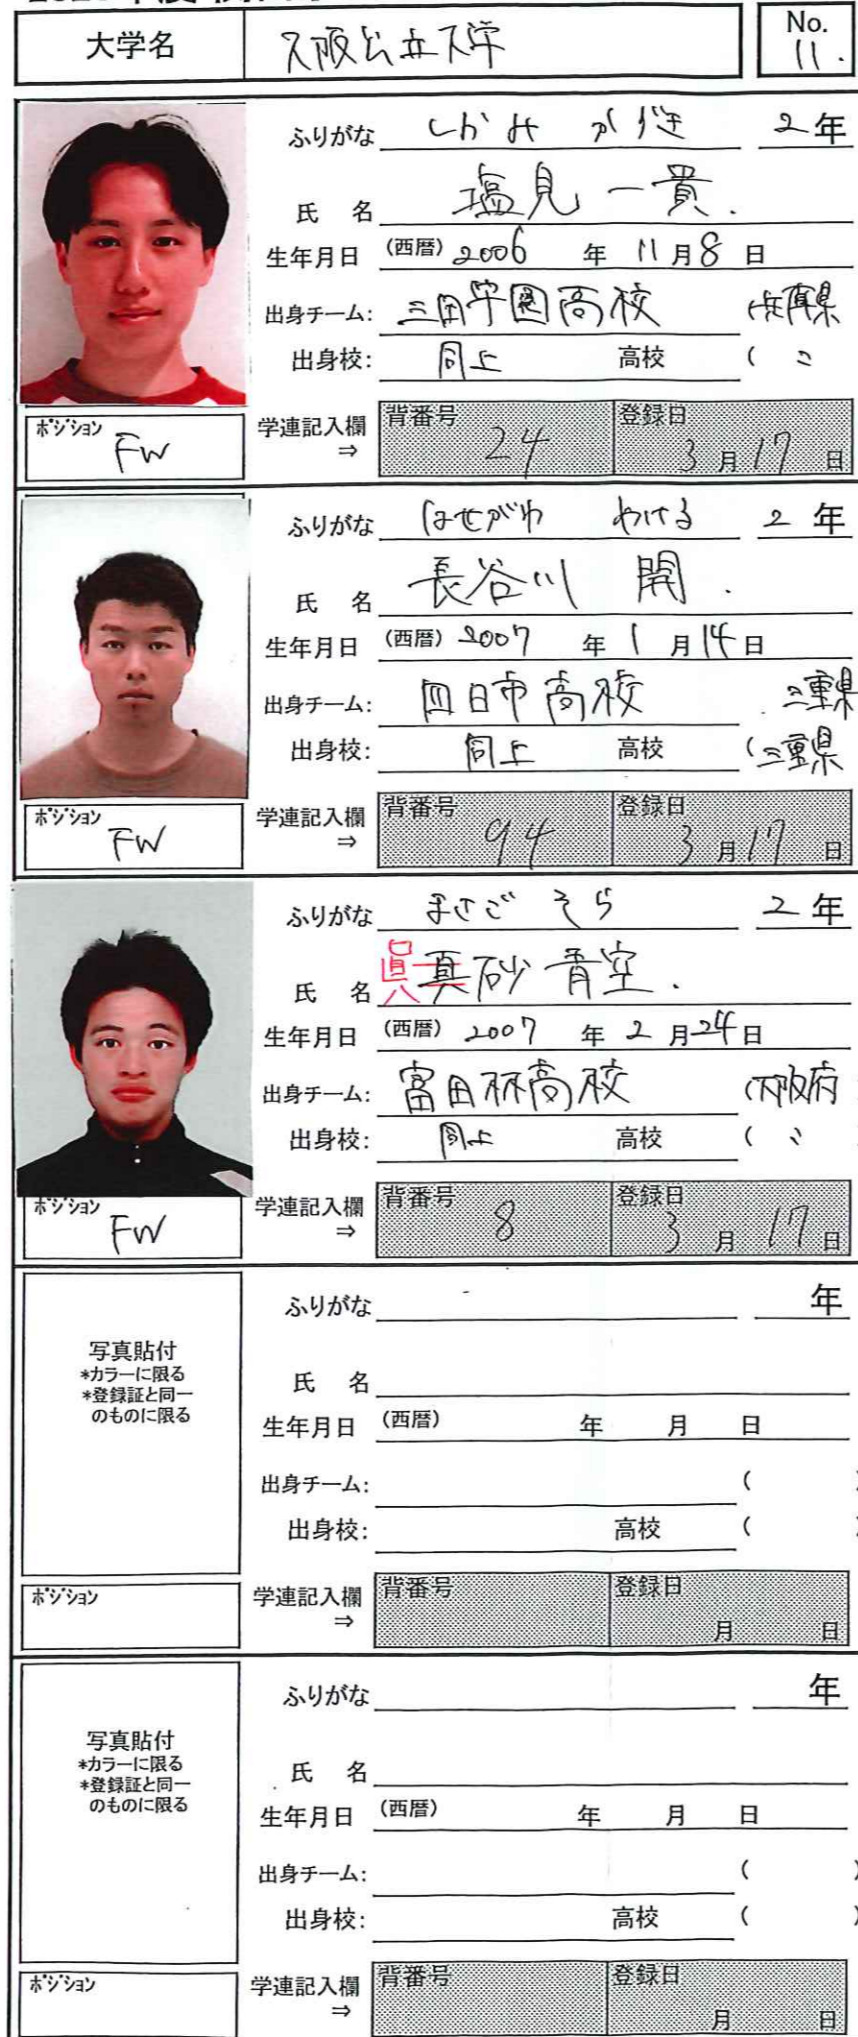 大学名 大阪公立大学 No. 11.
ふりがな しおみ かずき 2年
氏 名 塩見 一貴.
生年月日 (西暦) 2006 年 11 月 8 日
出身チーム: 三田学園高校 (兵庫県
出身校: 同上 高校 ( 〃
ポジション FW 学連記入欄 ⇒ 背番号 24 登録日 3 月 17 日
ふりがな はせがわ わける 2 年
氏 名 長谷川 開 .
生年月日 (西暦) 2007 年 1 月 14 日
出身チーム: 四日市高校 三重県
出身校: 同上 高校 (三重県
ポジション FW 学連記入欄 ⇒ 背番号 94 登録日 3 月 17 日
ふりがな まさご そら 2 年
氏 名 眞真砂 青空.
生年月日 (西暦) 2007 年 2 月 24 日
出身チーム: 富田林高校 (大阪府
出身校: 同上 高校 ( 〃
ポジション FW 学連記入欄 ⇒ 背番号 8 登録日 3 月 17 日
写真貼付
*カラーに限る
*登録証と同一
のものに限る
ふりがな 年
氏 名
生年月日 (西暦) 年 月 日
出身チーム: ( )
出身校: 高校 ( )
ポジション 学連記入欄 ⇒ 背番号 登録日 月 日
写真貼付
*カラーに限る
*登録証と同一
のものに限る
ふりがな 年
氏 名
生年月日 (西暦) 年 月 日
出身チーム: ( )
出身校: 高校 ( )
ポジション 学連記入欄 ⇒ 背番号 登録日 月 日